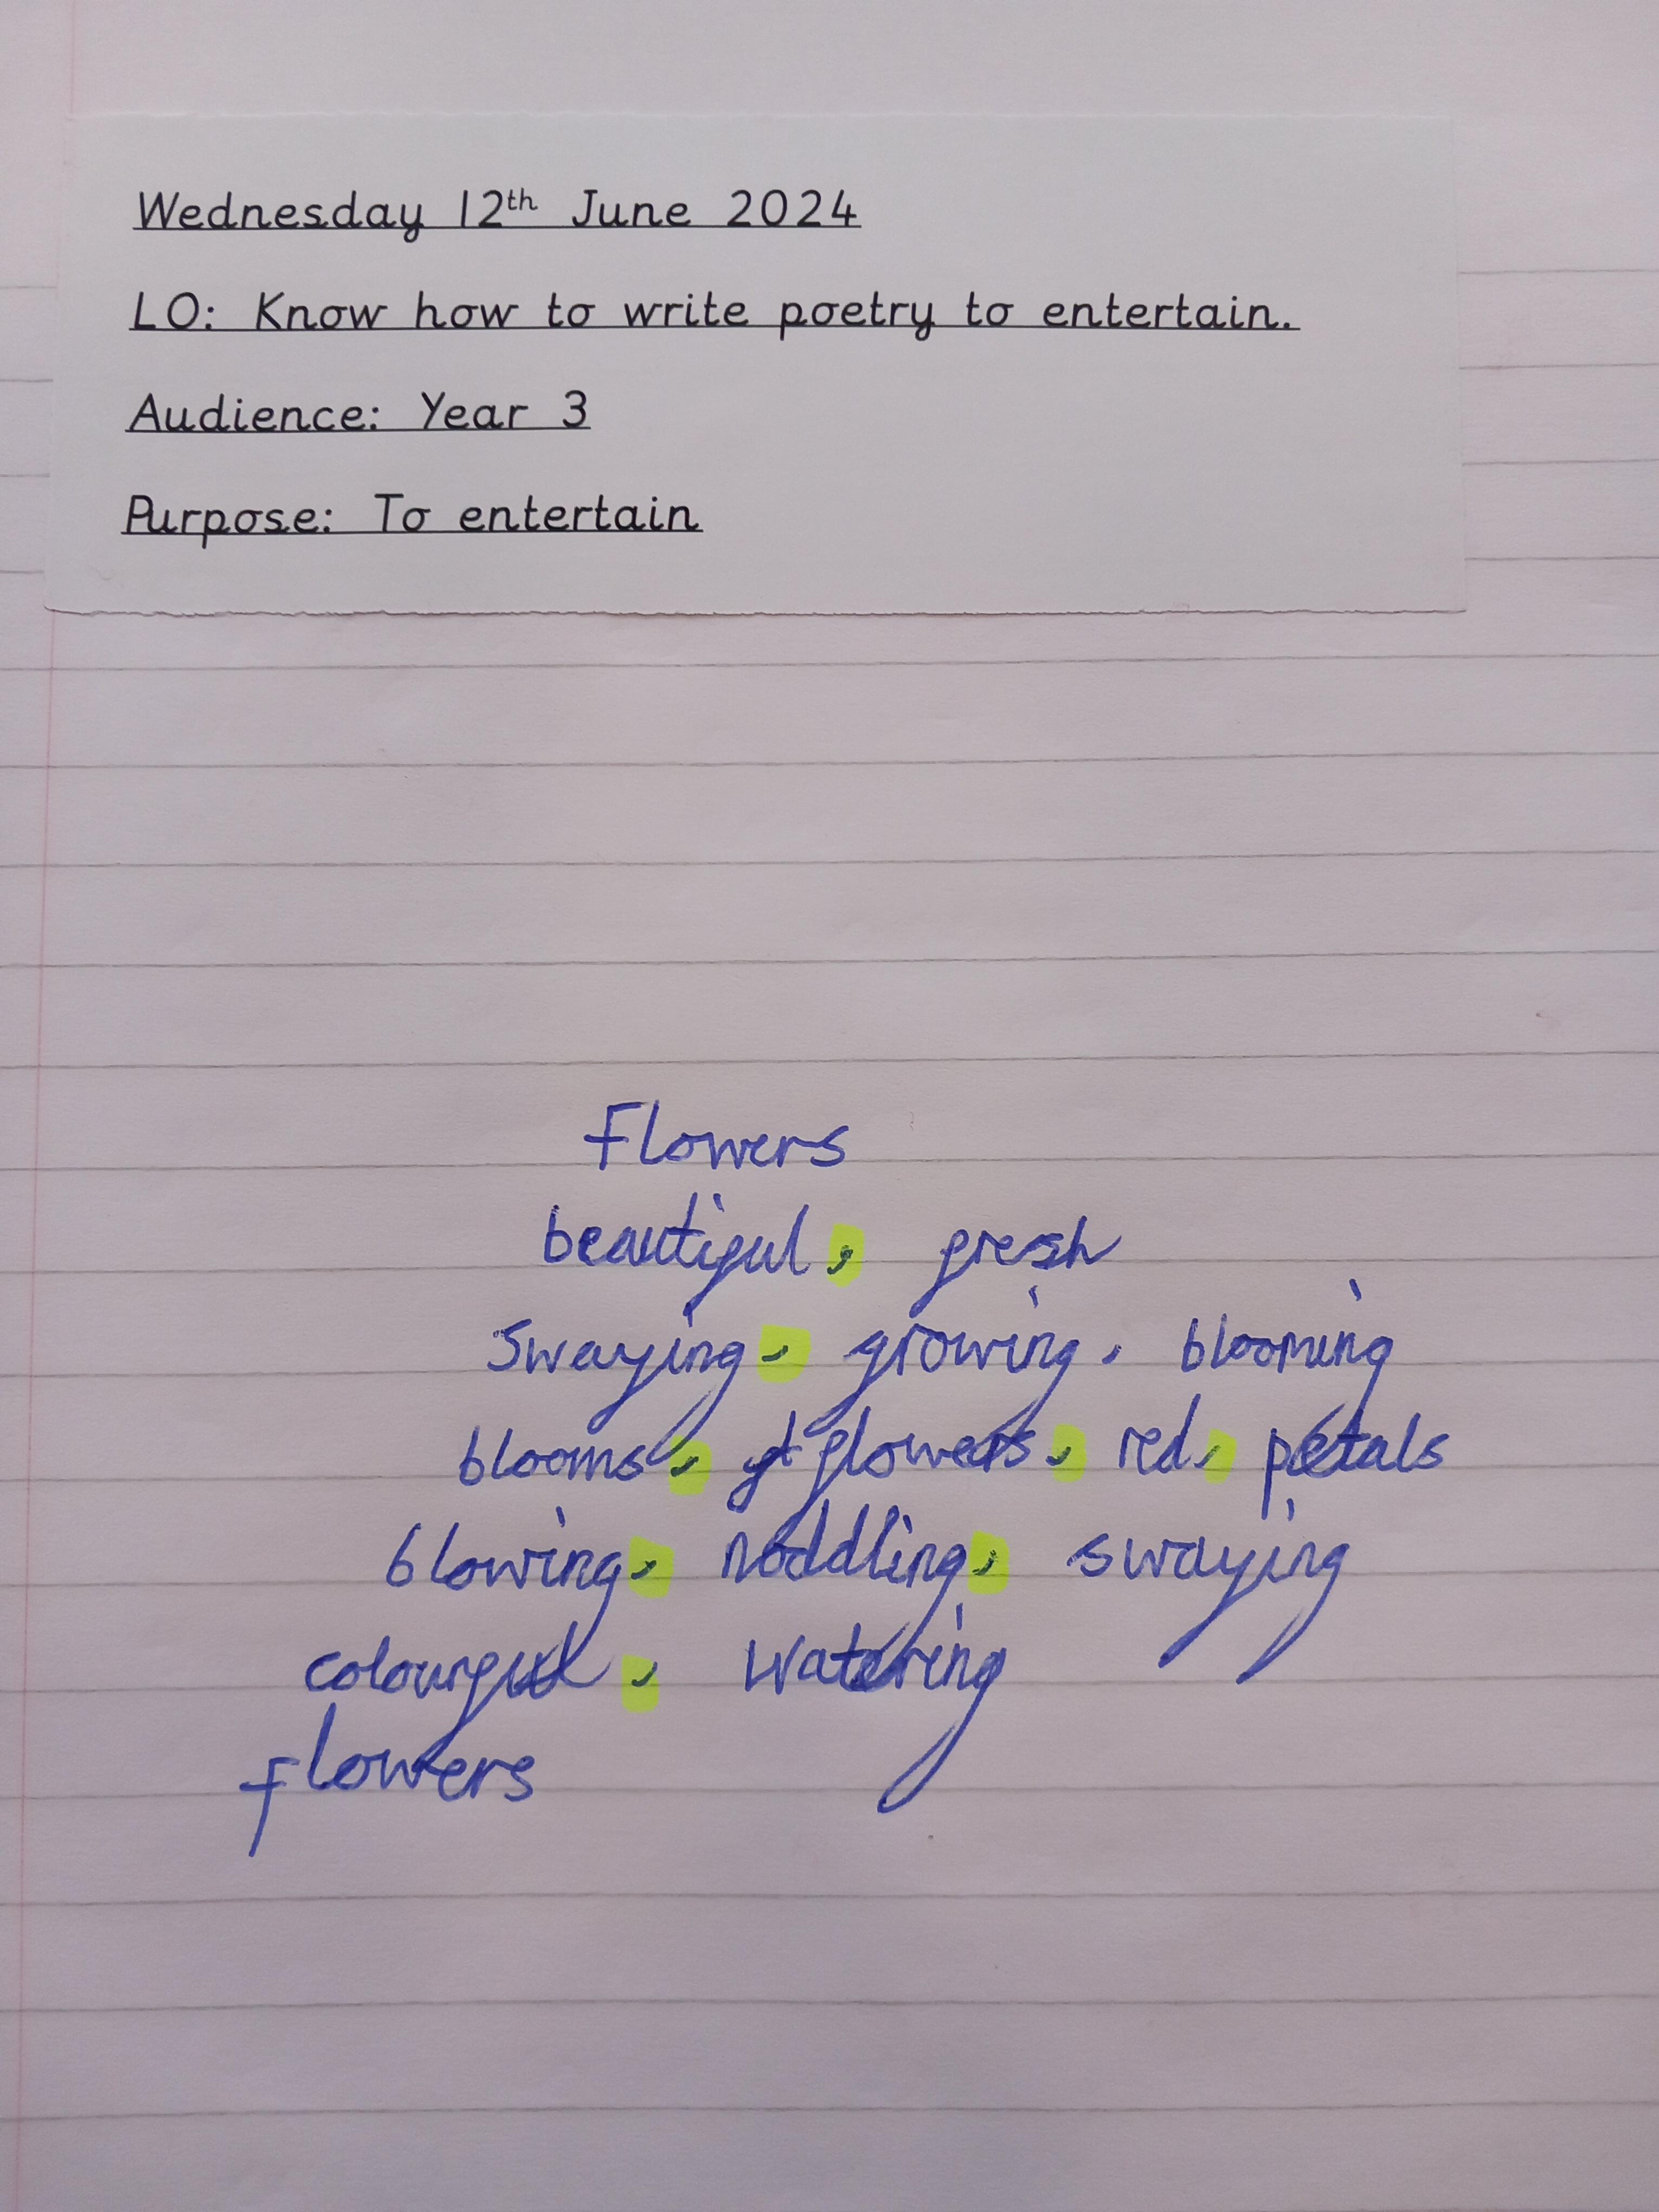 Wednesday 12th June 2024
LO: Know how to write poetry to entertain.
Audience: Year 3
Purpose: To entertain
Flowers
beautiful, fresh
Swaying, growing, blooming
blooms, flowers, red, petals
blowing, noddling, swaying
colourful, Watering
flowers